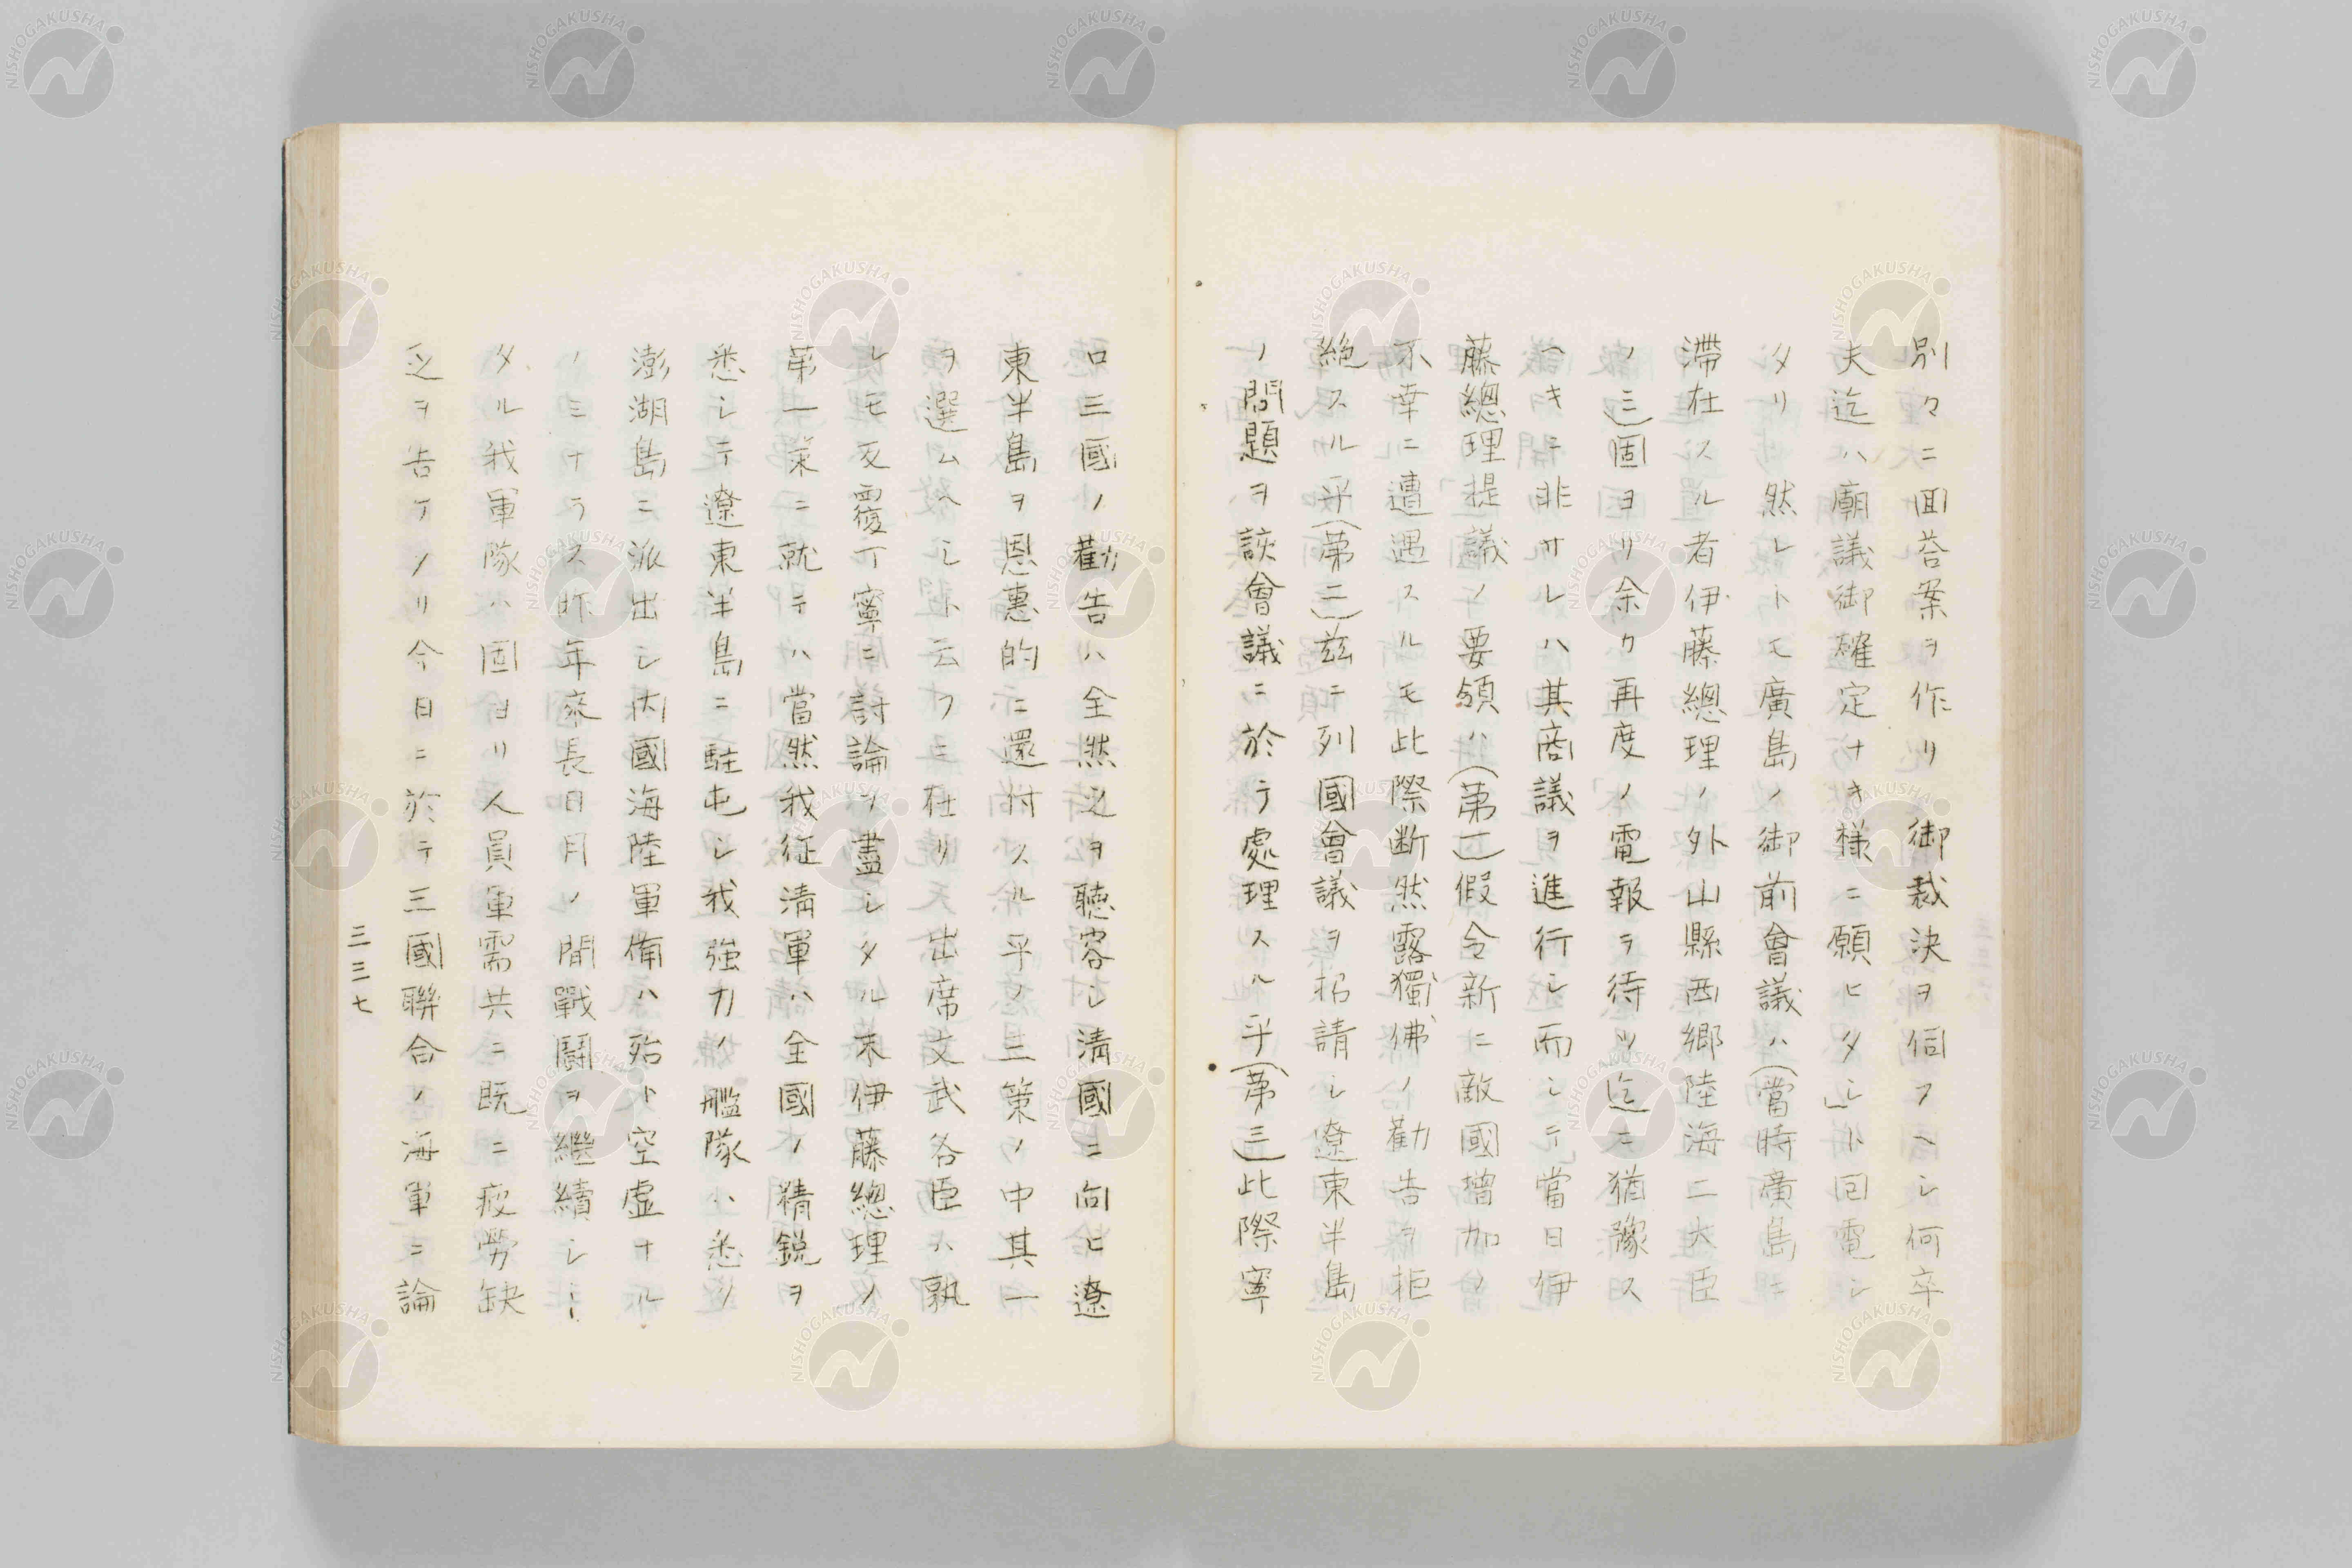 別々ニ回荅案ヲ作リ御裁決ヲ伺フヘシ何卒
夫迄ハ廟議御確定ナキ様ニ願ヒタシ」ト回電シ
タリ然レトモ廣島ノ御前會議ハ(當時廣島ニ
滞在スル者伊藤總理ノ外山縣西郷陸海二大臣
ノミ)固ヨリ余カ再度ノ電報ヲ待ツ迄ニ猶豫ス
ヘキニ非サレハ其商議ヲ進行シ而シテ當日伊
藤總理提議ノ要領ハ(第一)假令新ニ敵國増加ノ
不幸ニ遭遇スルモ此際断然露獨佛ノ勸告ヲ拒
絶スル乎(第二)茲ニ列國會議ヲ招請シ遼東半島
ノ問題ヲ該會議ニ於テ處理スル乎(第三)此際寧
ロ三國ノ勸告ハ全然之ヲ聴容シ清國ニ向ヒ遼
東半島ヲ恩惠的ニ還付スル乎ノ三策ノ中其一
ヲ選ムヘシト云フニ在リ出席文武各臣ハ孰
レモ反覆丁寧ニ討論ヲ盡シタル末伊藤總理ノ
第一策ニ就テハ當然我征清軍ハ全國ノ精鋭ヲ
悉シテ遼東半島ニ駐屯シ我強力ノ艦隊ハ悉ク
澎湖島ニ派出シ内國海陸軍備ハ殆ト空虚ナル
ノミナラス昨年來長日月ノ間戰鬪ヲ繼續シ
タル我軍隊ハ固ヨリ人員軍需共ニ既ニ疲勞缺
乏ヲ告ケノリ今日ニ於テ三國聯合ノ海軍ニ論
三三七
NISHOGAKUSHA